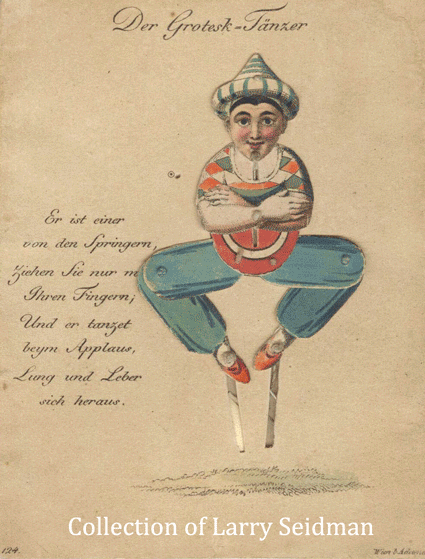 Der Grotesk-Tänzer
Er ist einer
von den Springern,
Ziehen Sie nur m
Ihren Fingern;
Und er tanzet
beym Applaus,
Lung und Leber
sich heraus.
124.
Wien b. Adam
Collection of Larry Seidman